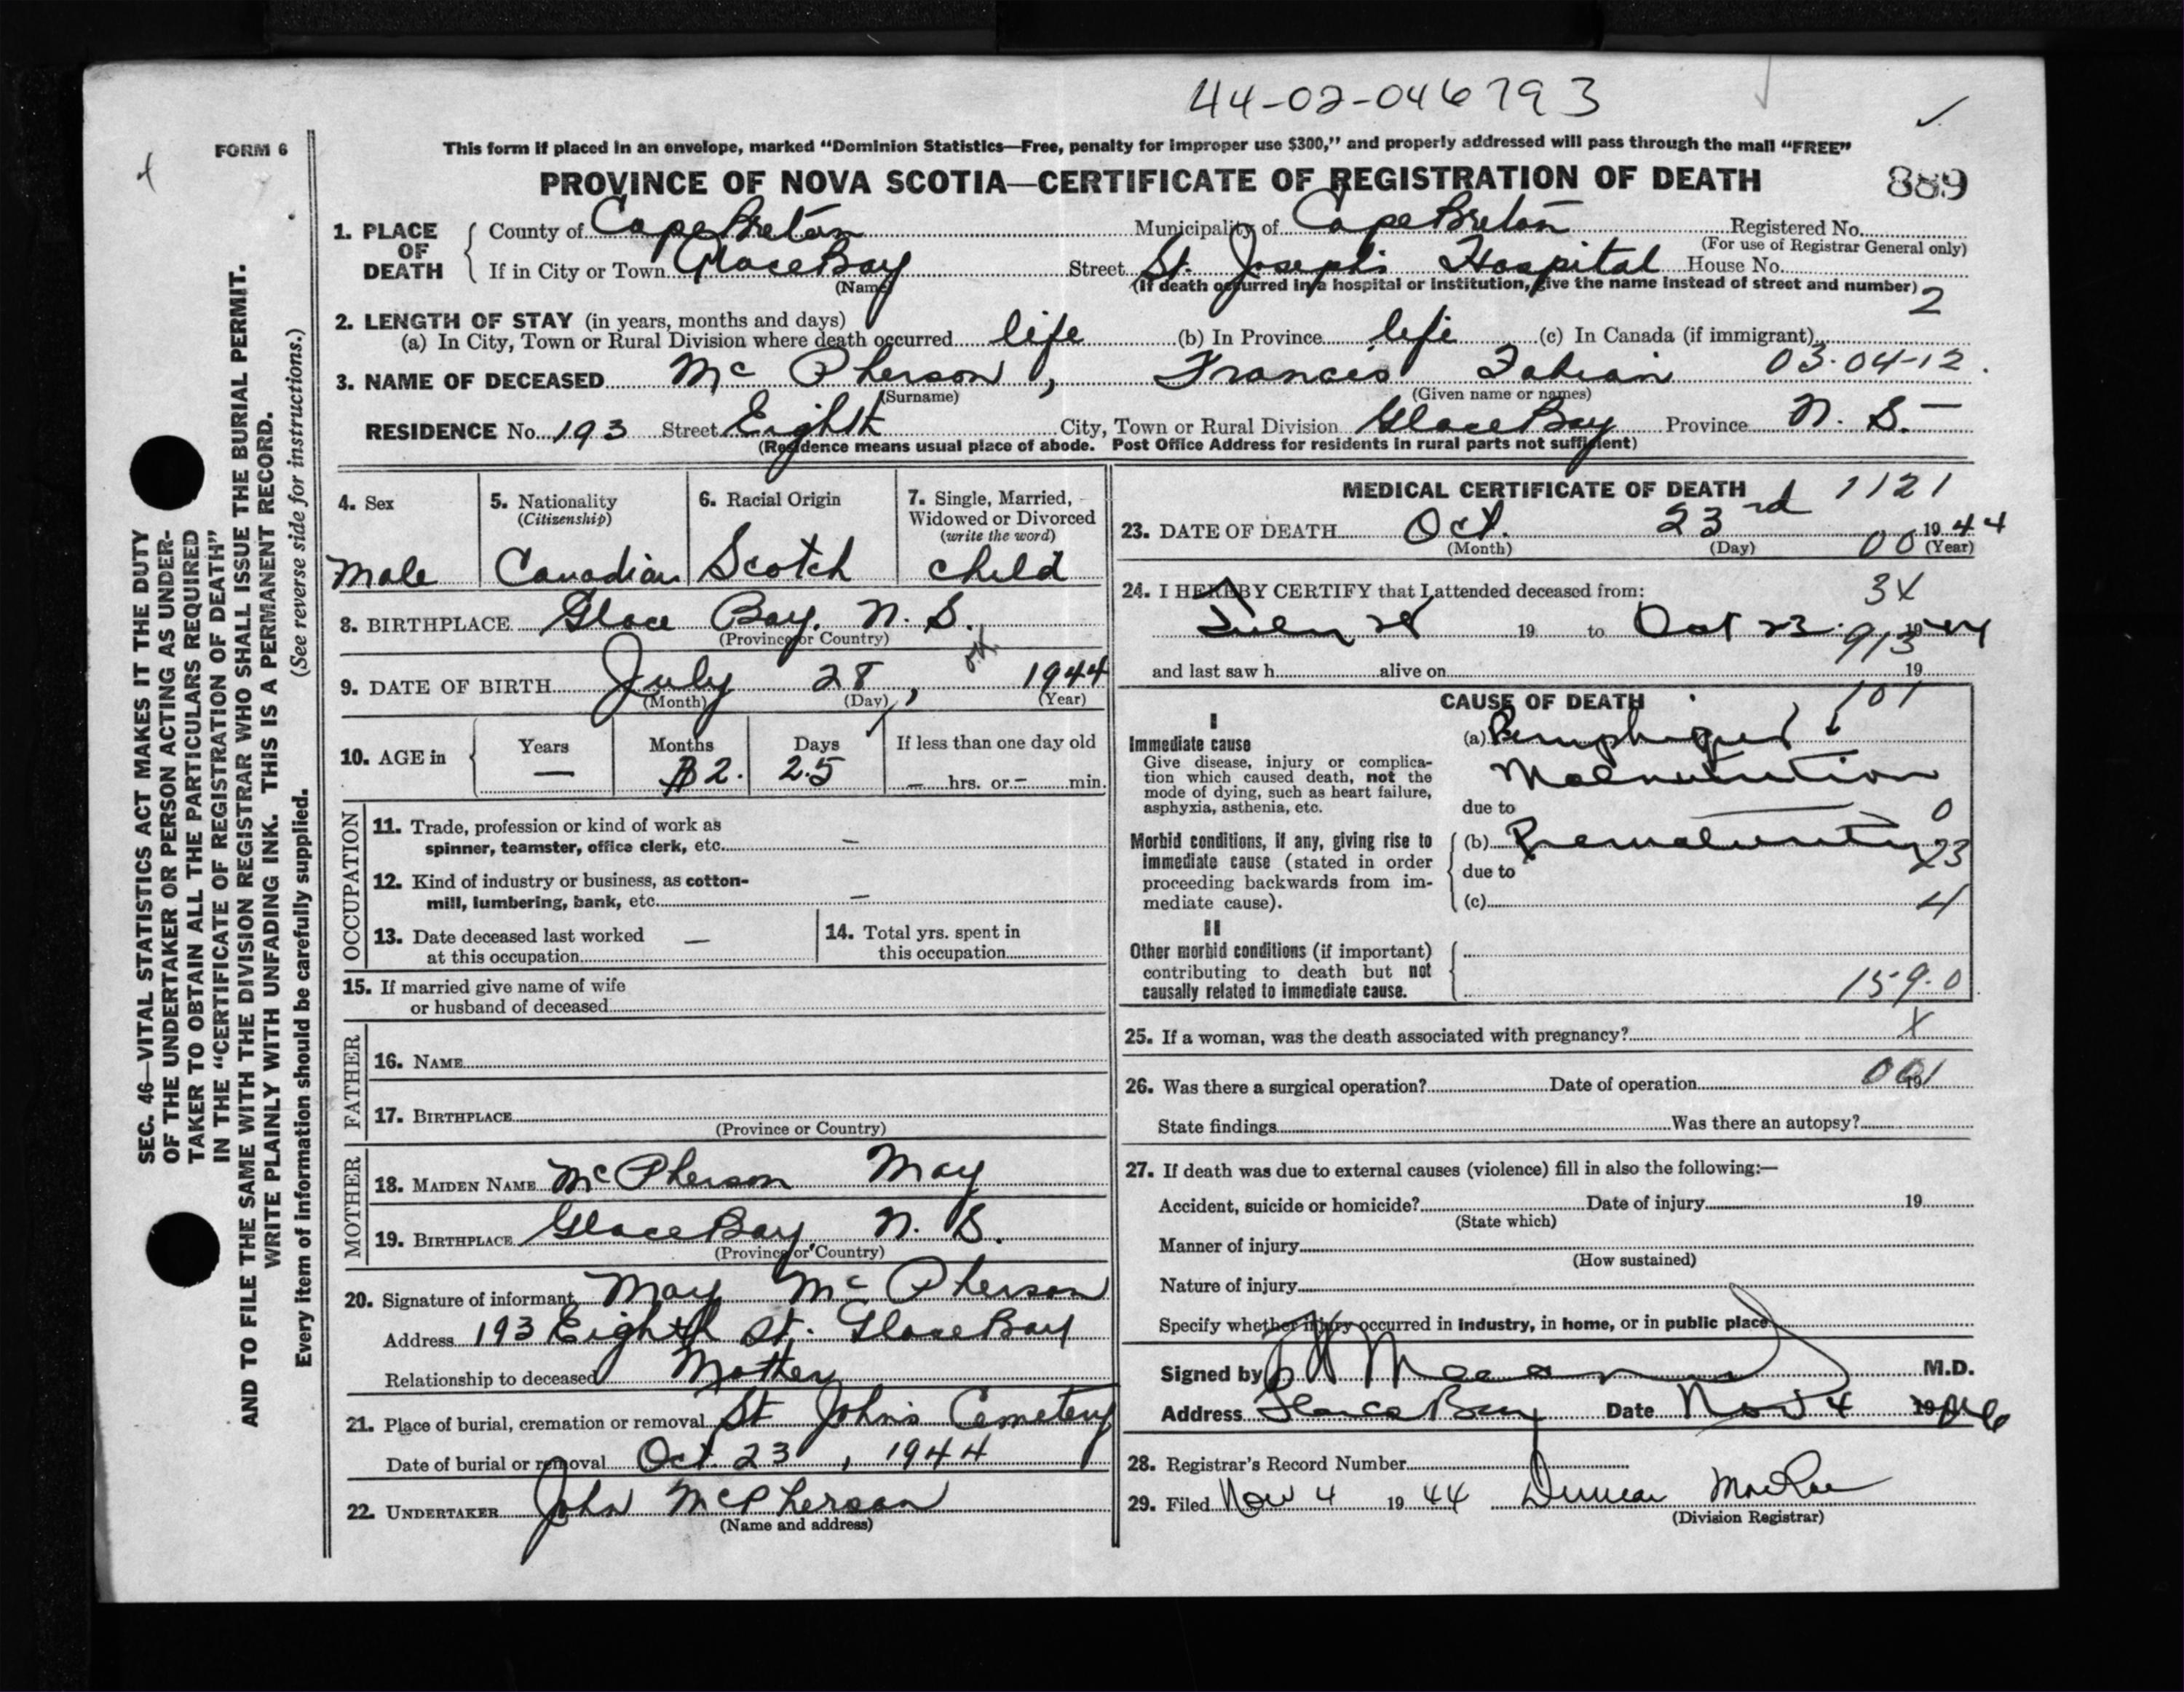 44-02-046793
FORM 6
This form if placed in an envelope, marked “Dominion Statistics—Free, penalty for improper use $300,” and properly addressed will pass through the mail “FREE”
PROVINCE OF NOVA SCOTIA—CERTIFICATE OF REGISTRATION OF DEATH
889
SEC. 46—VITAL STATISTICS ACT MAKES IT THE DUTY
OF THE UNDERTAKER OR PERSON ACTING AS UNDER-
TAKER TO OBTAIN ALL THE PARTICULARS REQUIRED
IN THE “CERTIFICATE OF REGISTRATION OF DEATH”
AND TO FILE THE SAME WITH THE DIVISION REGISTRAR WHO SHALL ISSUE THE BURIAL PERMIT.
WRITE PLAINLY WITH UNFADING INK. THIS IS A PERMANENT RECORD.
Every item of information should be carefully supplied. (See reverse side for instructions.)
1. PLACE OF DEATH
County of Cape Breton Municipality of Cape Breton Registered No.
(For use of Registrar General only)
If in City or Town Glace Bay Street St. Joseph's Hospital House No.
(Name) (If death occurred in a hospital or institution, give the name instead of street and number)
2
2. LENGTH OF STAY (in years, months and days)
(a) In City, Town or Rural Division where death occurred life (b) In Province life (c) In Canada (if immigrant)
3. NAME OF DECEASED McPherson, Francis Fabian 03-04-12
(Surname) (Given name or names)
RESIDENCE No. 193 Street Eighth City, Town or Rural Division Glace Bay Province N. S.
(Residence means usual place of abode. Post Office Address for residents in rural parts not sufficient)
4. Sex
Male
5. Nationality
(Citizenship)
Canadian
6. Racial Origin
Scotch
7. Single, Married,
Widowed or Divorced
(write the word)
child
8. BIRTHPLACE Glace Bay, N. S.
(Province or Country)
9. DATE OF BIRTH July 28, 1944
(Month) (Day) (Year)
10. AGE in
Years Months Days If less than one day old
— 2. 25 — hrs. or — min.
OCCUPATION
11. Trade, profession or kind of work as
spinner, teamster, office clerk, etc. —
12. Kind of industry or business, as cotton-
mill, lumbering, bank, etc. —
13. Date deceased last worked
at this occupation —
14. Total yrs. spent in
this occupation
15. If married give name of wife
or husband of deceased
FATHER
16. NAME
17. BIRTHPLACE
(Province or Country)
MOTHER
18. MAIDEN NAME McPherson May
19. BIRTHPLACE Glace Bay N. S.
(Province or Country)
20. Signature of informant May McPherson
Address 193 Eighth St. Glace Bay
Relationship to deceased Mother
21. Place of burial, cremation or removal St John's Cemetery
Date of burial or removal Oct. 23, 1944
22. UNDERTAKER John McPherson
(Name and address)
MEDICAL CERTIFICATE OF DEATH 1121
23. DATE OF DEATH Oct. 23rd 1944
(Month) (Day) (Year)
00
24. I HEREBY CERTIFY that I attended deceased from: 3X
July 28 19 to Oct 23 1944
913
and last saw h alive on 19
CAUSE OF DEATH
101
I
Immediate cause
Give disease, injury or complica-
tion which caused death, not the
mode of dying, such as heart failure,
asphyxia, asthenia, etc.
(a) Pemphigus
Malnutrition
due to
0
Morbid conditions, if any, giving rise to
immediate cause (stated in order
proceeding backwards from im-
mediate cause).
(b) Prematurity
due to
23
(c) 4
II
Other morbid conditions (if important)
contributing to death but not
causally related to immediate cause.
159.0
25. If a woman, was the death associated with pregnancy? X
26. Was there a surgical operation? Date of operation 19
001
State findings Was there an autopsy?
27. If death was due to external causes (violence) fill in also the following:—
Accident, suicide or homicide? Date of injury 19
(State which)
Manner of injury
(How sustained)
Nature of injury
Specify whether injury occurred in industry, in home, or in public place
Signed by M.D.
Address Glace Bay Date Nov 4 19
28. Registrar's Record Number
29. Filed Nov 4 1944 Duncan MacRae
(Division Registrar)